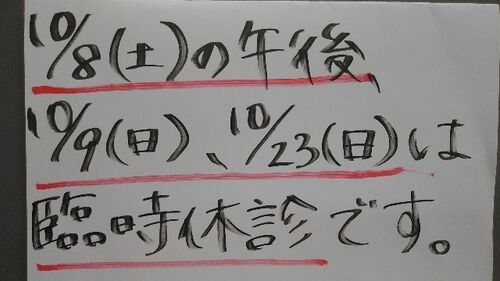 10/8(土)の午後、
10/9(日)、10/23(日)は
臨時休診です。